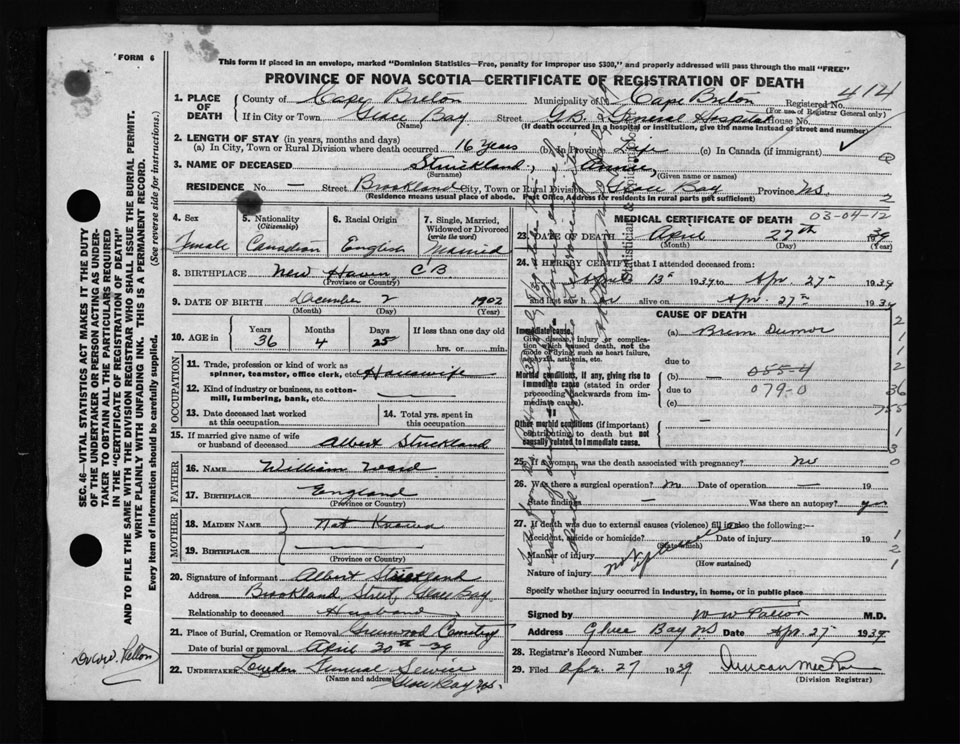 FORM 6
This form if placed in an envelope, marked "Dominion Statistics—Free, penalty for improper use $300," and properly addressed will pass through the mail "FREE"
PROVINCE OF NOVA SCOTIA—CERTIFICATE OF REGISTRATION OF DEATH
414
1. PLACE OF DEATH
County of Cape Breton Municipality of Cape Breton Registered No.
(For use of Registrar General only)
If in City or Town Glace Bay Street G.B. General Hospital House No.
(Name) (If death occurred in a hospital or institution, give the name instead of street and number)
2. LENGTH OF STAY (in years, months and days)
(a) In City, Town or Rural Division where death occurred 16 years (b) In Province Life (c) In Canada (if immigrant)
3. NAME OF DECEASED Strickland, Annie,
(Surname) (Given name or names)
RESIDENCE No. — Street Brookland City, Town or Rural Division Glace Bay Province N.S.
(Residence means usual place of abode. Post Office Address for residents in rural parts not sufficient)
4. Sex
Female
5. Nationality
(Citizenship)
Canadian
6. Racial Origin
English
7. Single, Married, Widowed or Divorced
(write the word)
Married
8. BIRTHPLACE New Haven, C.B.
(Province or Country)
9. DATE OF BIRTH December 2 1902
(Month) (Day) (Year)
10. AGE in
Years 36
Months 4
Days 25
If less than one day old
hrs. or min.
OCCUPATION
11. Trade, profession or kind of work as spinner, teamster, office clerk, etc. Housewife
12. Kind of industry or business, as cotton-mill, lumbering, bank, etc. —
13. Date deceased last worked at this occupation
14. Total yrs. spent in this occupation
15. If married give name of wife or husband of deceased Albert Strickland
FATHER
16. NAME William Ward
17. BIRTHPLACE England
(Province or Country)
MOTHER
18. MAIDEN NAME Not Known
19. BIRTHPLACE —
(Province or Country)
20. Signature of informant Albert Strickland
Address Brookland Street, Glace Bay
Relationship to deceased Husband
21. Place of Burial, Cremation or Removal Greenwood Cemetery
Date of burial or removal April 30th 39
22. UNDERTAKER Funeral Service
(Name and address) Glace Bay N.S.
MEDICAL CERTIFICATE OF DEATH
03-04-12
23. DATE OF DEATH April 27th 1939
(Month) (Day) (Year)
24. I HEREBY CERTIFY that I attended deceased from:
April 13th 1939 to Apr. 27 1939
and last saw h er alive on Apr. 27th 1939
CAUSE OF DEATH
Immediate cause
Give disease, injury or complication which caused death, not the mode of dying, such as heart failure, asphyxia, asthenia, etc.
(a)
due to
Morbid conditions, if any, giving rise to immediate cause (stated in order proceeding backwards from immediate cause).
(b) — 055-4
due to 079-0
(c)
II
Other morbid conditions (if important) contributing to death but not causally related to immediate cause.
—
25. If a woman, was the death associated with pregnancy? No
26. Was there a surgical operation? No Date of operation — 19
State findings — Was there an autopsy? yes
27. If death was due to external causes (violence) fill in also the following:—
Accident, suicide or homicide? Date of injury 19
(State which)
Manner of injury
(How sustained)
Nature of injury
Specify whether injury occurred in industry, in home, or in public place
Signed by M.D.
Address Glace Bay N.S. Date Apr. 27 1939
28. Registrar's Record Number
29. Filed Apr. 27 1939
(Division Registrar)
SEC. 46—VITAL STATISTICS ACT MAKES IT THE DUTY OF THE UNDERTAKER OR PERSON ACTING AS UNDERTAKER TO OBTAIN ALL THE PARTICULARS REQUIRED IN THE "CERTIFICATE OF REGISTRATION OF DEATH"
AND TO FILE THE SAME WITH THE DIVISION REGISTRAR WHO SHALL ISSUE THE BURIAL PERMIT.
WRITE PLAINLY WITH UNFADING INK. THIS IS A PERMANENT RECORD.
Every item of information should be carefully supplied. (See reverse side for instructions.)